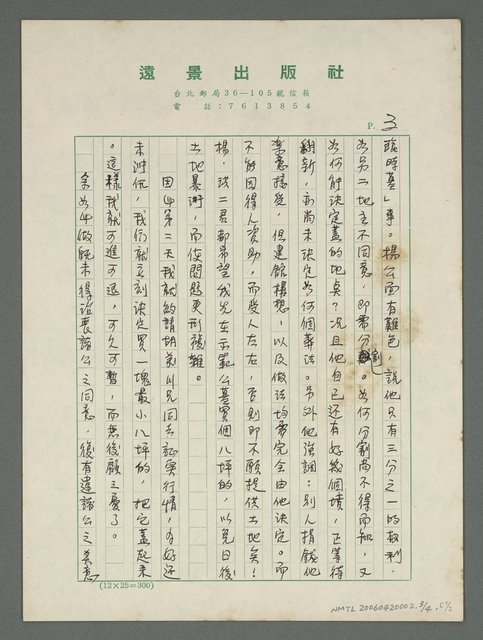 遠景出版社
台北郵局36—105號信箱
電話:7613854
P. 3
臨時墓」事。楊公面有難色，說他只有三分之一的权利，
如另二地主不同意，即需分割。如何分割尚不得而知，又
如何能決定蓋的地点？况且他自己还有好幾個墳，正等待
翻新，亦尚未決定如何個葬法。另外他強調：別人捐錢他
樂意接受，但建館構想，以及做法均需完全由他決定。而
不能因得人資助，而受人左右，否則即不願提供土地矣！
楊、 二君都希望我先在示範公墓買個八坪的，以免日後
土地暴漲，而使問題更形複雜。
因此第二天我就約請胡 川兄同去証實行情，  好还
未漲価，我們就立刻決定買一塊最小八坪的，把它蓋起來
。這樣我就可進可退，可久可暫，而無後顧之憂了。
余如此做既未得治喪諸公之同意，後有違諸公之美意
(12×25=300)
NMTL 20060420002, 3/4, c1/2